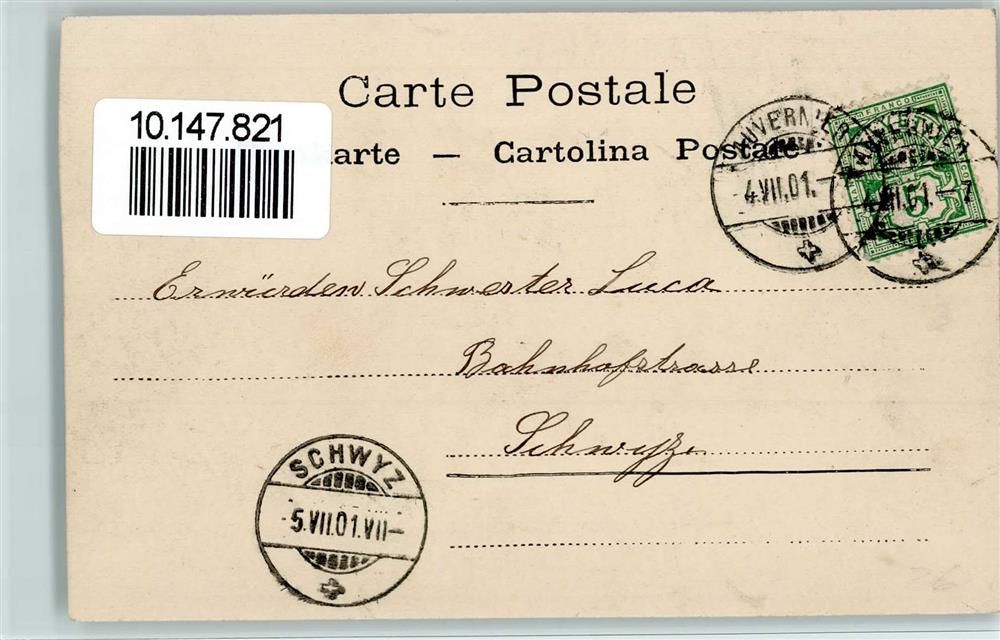 Carte Postale
10.147.821
arte — Cartolina Postale
AUVERNIER
4.VII.01.
AUVERNIER
4.VII.01.–7
FRANCO
5
Erwürden Schwester Luca
Bahnhofstrasse
Schwyz
SCHWYZ
5.VII.01.VII–
26